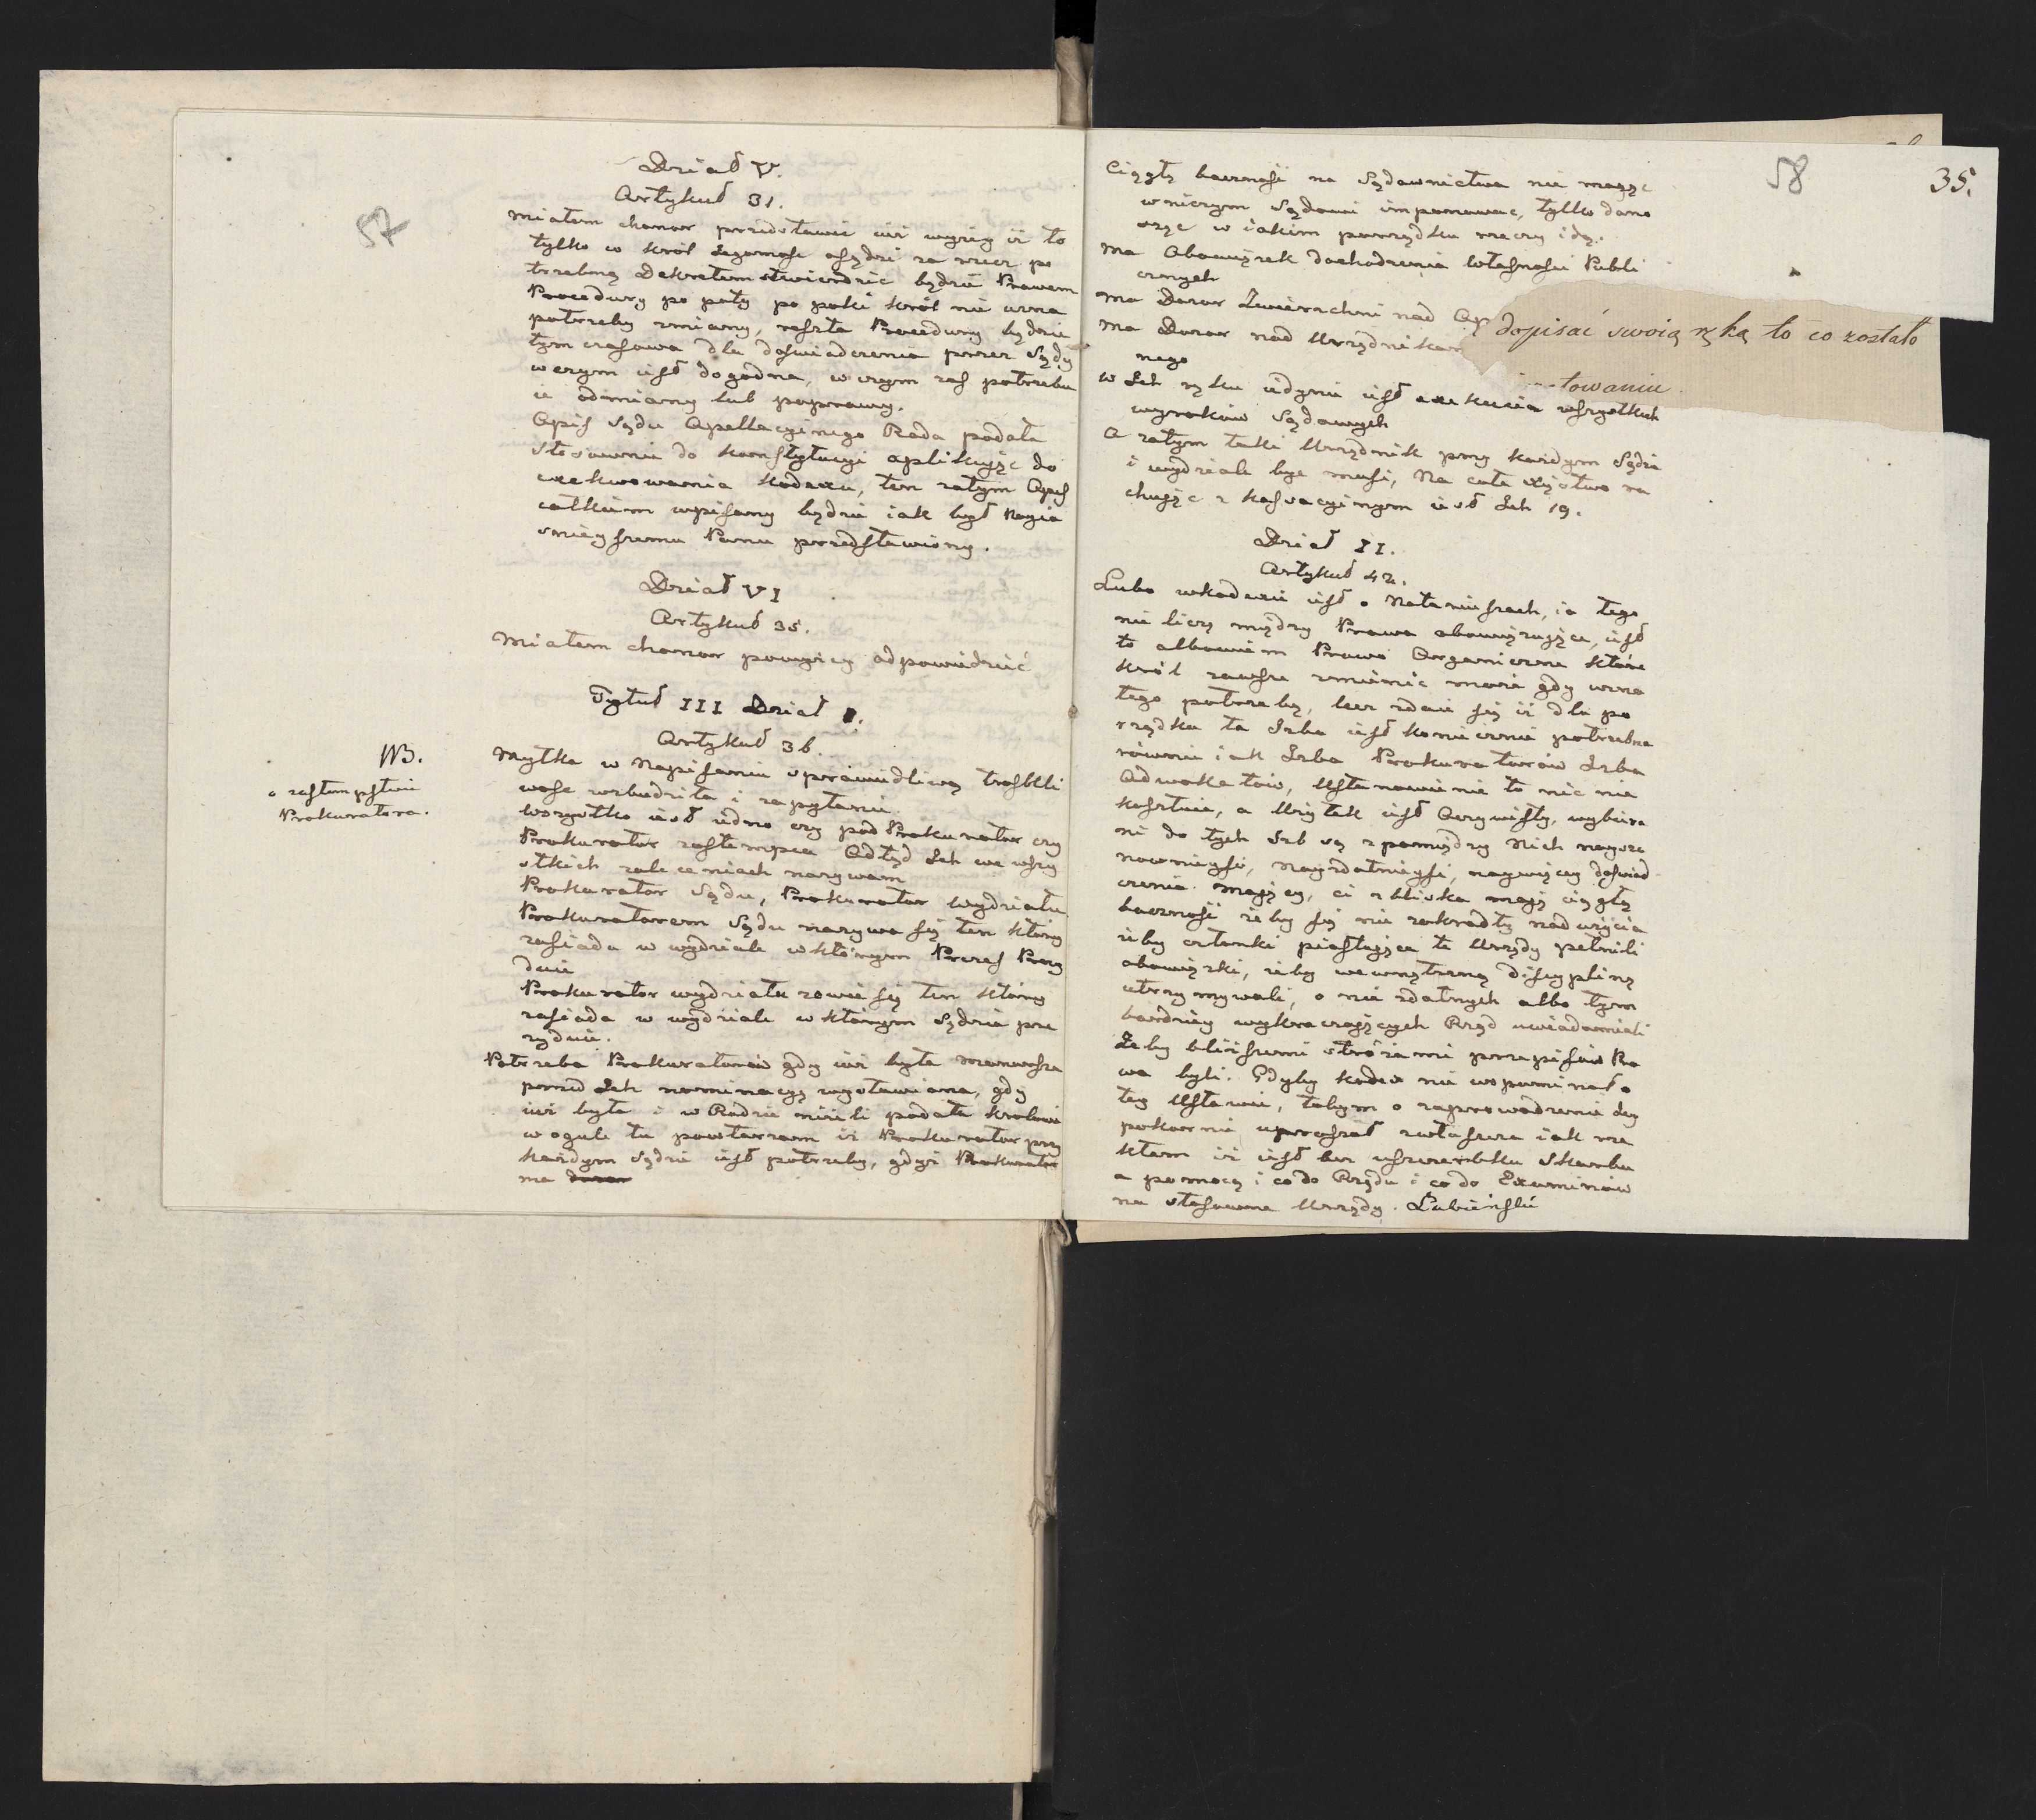 57
Dział V.
Artykuł 31.
Miałem chonor przedstawić iuż wyżey iż to
tylko co Król Jegomość osądzi za rzecz po
trzebną Dekretem stwierdzić będzie Prawem
Procedury po póty po poki Król nie uzna
potrzeby zmiany, reszta Procedury będzie
tymczasowa dla doświadczenia przez Sądy
w czym iest dogodna, w czym zaś potrzebu
ie odmiany lub poprawy.
Opis Sądu Apellacyinego Rada podała
stosownie do Konstytucyi aplikuiąc do
exekwowania Kodexu, ten zatym Opis
całkiem wpisany będzie iak był Nayia
śnieyszemu Panu przedstawiony.
Dział VI
Artykuł 35.
Miałem chonor powyżey odpowiedzieć
Tytuł III Dział I.
Artykuł 36.
NB.
o zastempstwie
Prokuratora.
Myłka w Napisaniu sprawiedliwą troskli
wość wzbudziła i zapytanie.
Wszystko iest iedno czy pod Prokurator czy
Prokurator zastempca Odtąd Ich we wszy
stkich zaleceniach nazywam
Prokurator Sądu, Prokurator wydziału
Prokuratorem Sądu nazywa się ten który
zasiada w wydziale w którym Prezes Prezy
duie
Prokurator wydziału zowie się ten który
zasiada w wydziale w którym Sędzia pre
zyduie.
Potrzeba Prokuratorów gdy iuż była
przed Ich nominacyą wystawiona, gdy
iuż była i w Radzie nizeli podała Królowi
w ogule tu powtarzam iż Prokurator przy
każdym Sądzie iest potrzeby, gdyż Prokurator
ma dozor
58
35.
Ciągłą baczność na Sądownictwa nie mogąc
w niczym Sądowi imponować, tylko dono
sząc w iakim porządku rzeczy idą.
Ma Obowiązek dochodzenia Własności Publi
cznych
Ma Dozor Zwierzchni nad Op
Ma Dozor nad Urzędnikam
nego
dopisać swoią ręką to co zostało
towaniu.
W Ich ręku iedynie iest exekucia wszystkich
wyroków Sądowych
A zatym taki Urzędnik przy każdym Sądzie
i wydziale być musi, Na całe Xięstwo ra
chuiąc z Kassacyinym iest Ich 19.
Dział II.
Artykuł 42.
Lubo w Kodexie iest o Notariuszach, ia tego
nie liczę między Prawa obowiązuiące, iest
to albowiem Prawo Organiczne które
Król zawsze zmienić może gdy uzna
tego potrzebę, lecz zdaie się iż dla po
rządku ta Izba iest koniecznie potrzebna
równie iak Izba Prokuratorów Izba
Adwokatów, Ustanowienie to nic nie
kosztuie, a Użytek iest Oczywisty, wybiera
ni do tych Izb są z pomiędzy Nich naysza
nownieysi, nayzdatnieysi, naywięcey doświad
czenia maiący, ci z bliska maią ciągłą
baczność żeby się nie zakradły nadużycia
żeby członki piastuiące te Urzędy pełnili
obowiązki, żeby wewnętrzną discyplinę
utrzymywali, o nie zdatnych albo tym
bardziey wykraczaiących Rząd uwiadomiali
Żeby bliższemi stróżami przepisów Pra
wa byli. Gdyby Kodex nie wspominał o
tey Ustawie, tobym o zaprowadzenie Jey
pokornie upraszał zwłaszcza iak rze
kłem iż iest bez uszczerbku Skarbu
a pomocą i co do Rządu i co do Examinów
na stosowne Urzędy. Łubieński